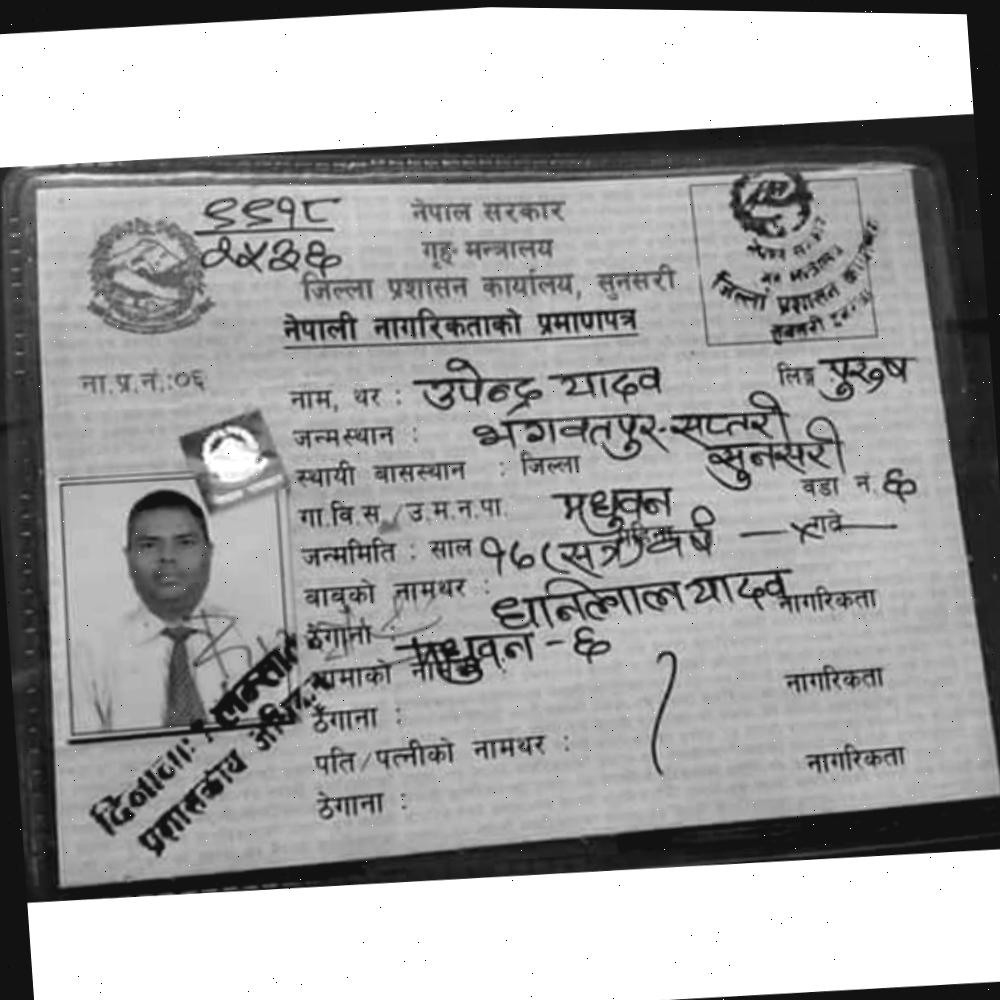 ९९१८
२५३६
नेपाल सरकार
गृह मन्त्रालय
जिल्ला प्रशासन कार्यालय, सुनसरी
नेपाली नागरिकताको प्रमाणपत्र
जिल्ला प्रशासन
ना.प्र.नं.:०६
नाम, थर : उपेन्द्र यादव लिङ्ग पुरुष
जन्मस्थान : भगवतपुर-सप्तरी
स्थायी बासस्थान : जिल्ला सुनसरी
गा.वि.स./उ.म.न.पा. मधुवन वडा नं. ६
जन्ममिति : साल १७ (सत्र) वर्ष —×गते—
बाबुको नामथर : धानिलाल यादव नागरिकता
ठेगाना : मधुवन-६
आमाको नागरिकता
ठेगाना :
पति/पत्नीको नामथर : नागरिकता
ठेगाना :
प्रशासकीय